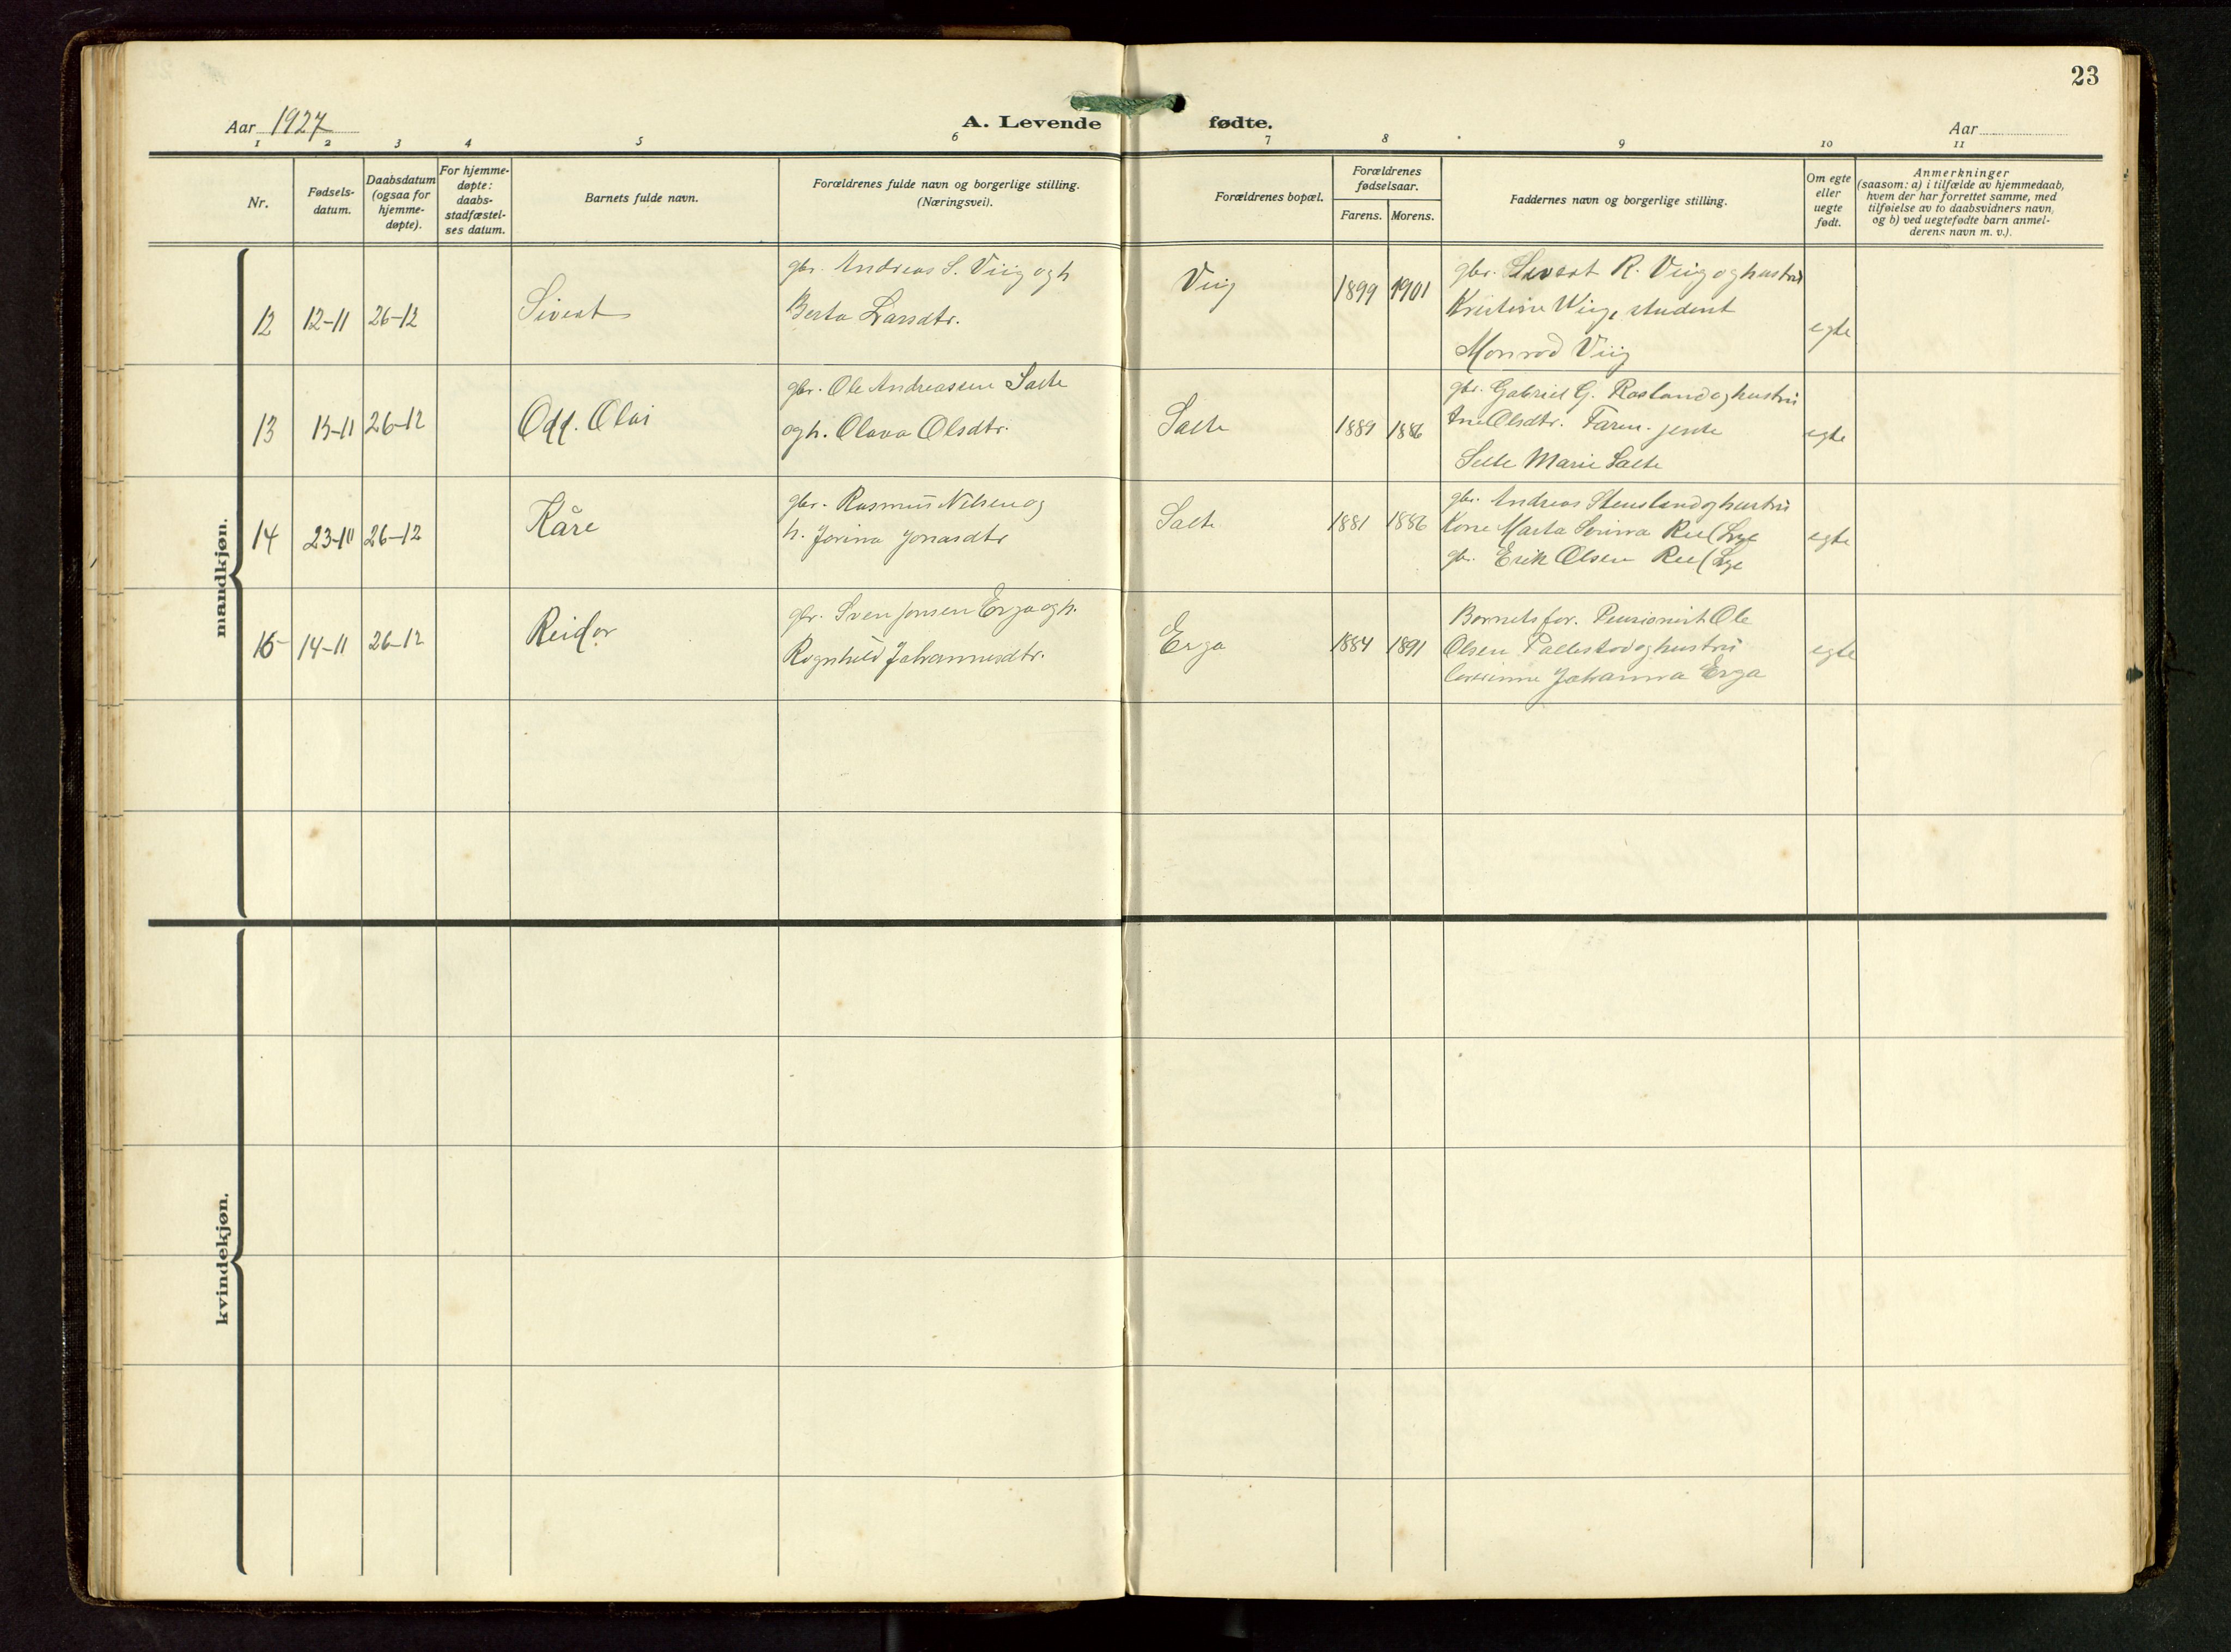 23
Aar 1927
A. Levende fødte.
Aar
1 2 3 4 5 6 7 8 9 10 11
Nr.
Fødsels-
datum.
Daabsdatum
(ogsaa for
hjemme-
døpte).
For hjemme-
døpte:
daabs-
stadfæstel-
ses datum.
Barnets fulde navn.
Forældrenes fulde navn og borgerlige stilling.
(Næringsvei).
Forældrenes bopæl.
Forældrenes
fødselsaar.
Farens. Morens.
Faddernes navn og borgerlige stilling.
Om egte
eller
uegte
født.
Anmerkninger
(saasom: a) i tilfælde av hjemmedaab,
hvem der har forrettet samme, med
tilføielse av to daabsvidners navn,
og b) ved uegtefødte barn anmel-
derens navn m. v.).
mandkjøn.
12 12-11 26-12 Sivert
gbr. Andreas S. Viig og h
Berta Larsdtr.
Viig 1899 1901
gbr. Sivert R. Viig og hustru
Kristine Wiig, student
Monrad Viig
egte
13 13-11 26-12 Odd. Olai
gbr. Ole Andreassen Salte
og h. Olava Olsdtr.
Salte 1889 1886
gbr. Gabriel G. Rosland og hustru
Ine Olsdtr. Farm. jente
Selte Marie Salte
egte
14 23-10 26-12 Kåre
gbr. Rasmus Nilsen og
h. Jorina Jonasdtr
Salte 1881 1886
gbr. Andreas Stensland og hustru
Kone Marta Serina Ree (Lye
gbr. Erik Olsen Ree (Lye
egte
15 14-11 26-12 Reidar
gbr. Sven Jonsen Erga og h.
Ragnhild Johannesdtr.
Erga 1884 1891
Barnets far. Pensionist Ole
Olsen Pallestad og hustru
Johanna Erga
egte
kvindekjøn.